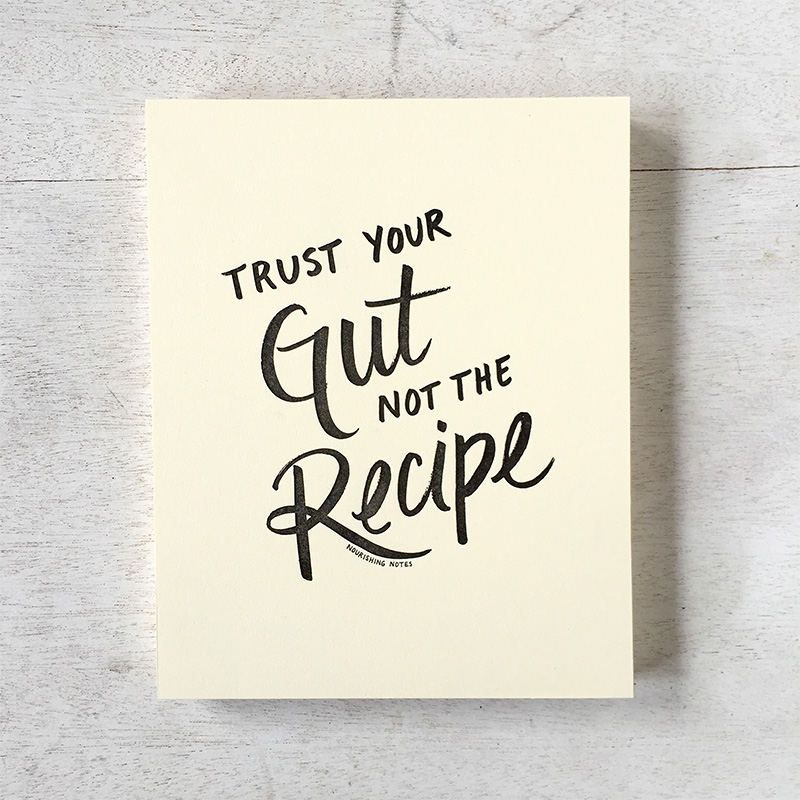 TRUST YOUR
Gut
NOT THE
Recipe
NOURISHING NOTES